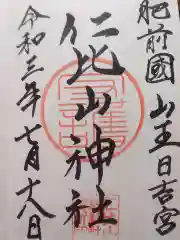 肥前國 山王日吉宮
仁比山神社
令和三年七月十八日